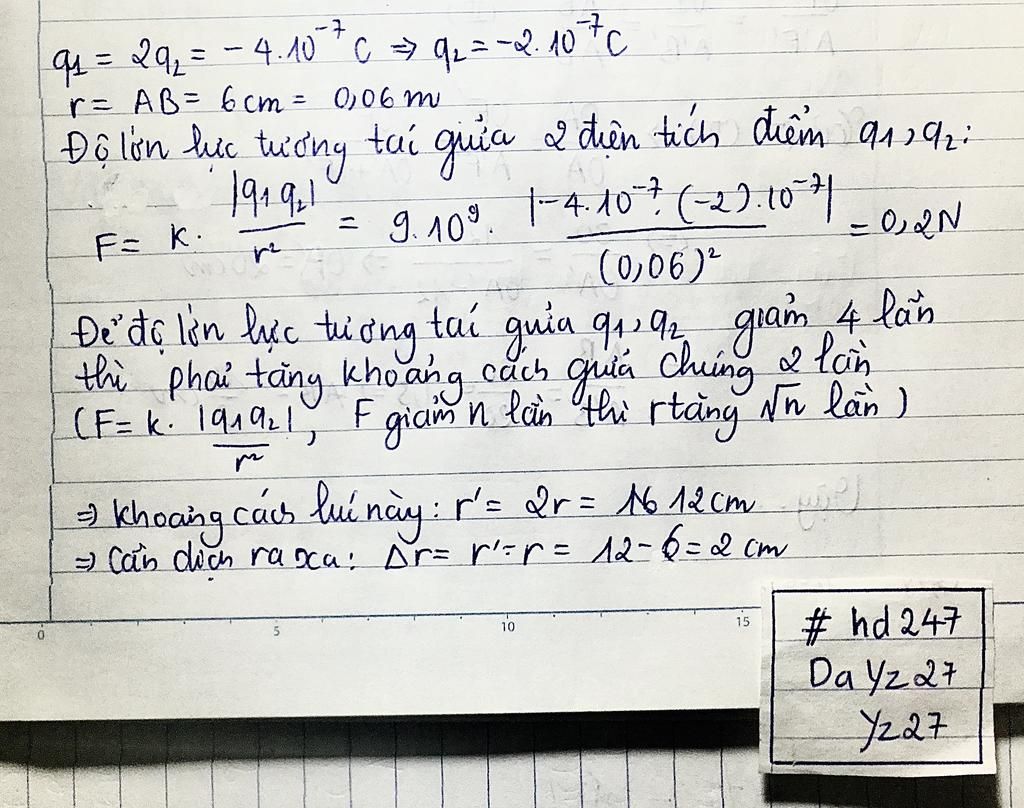 q1 = 2q2 = -4.10⁻⁷ C ⇒ q2 = -2.10⁻⁷ C
r = AB = 6cm = 0,06 m
Độ lớn lực tương tác giữa 2 điện tích điểm q1, q2:
F = k. |q1 q2| / r² = 9.10⁹. |-4.10⁻⁷. (-2).10⁻⁷| / (0,06)² = 0,2N
Để độ lớn lực tương tác giữa q1, q2 giảm 4 lần
thì phải tăng khoảng cách giữa chúng 2 lần
(F = k. |q1q2| / r², F giảm n lần thì r tăng √n lần)
⇒ khoảng cách lúc này: r' = 2r = 12 cm
⇒ Cần dịch ra xa: Δr = r' - r = 12 - 6 = 2 cm
0 5 10 15
# hd247
Da Yz27
Yz27